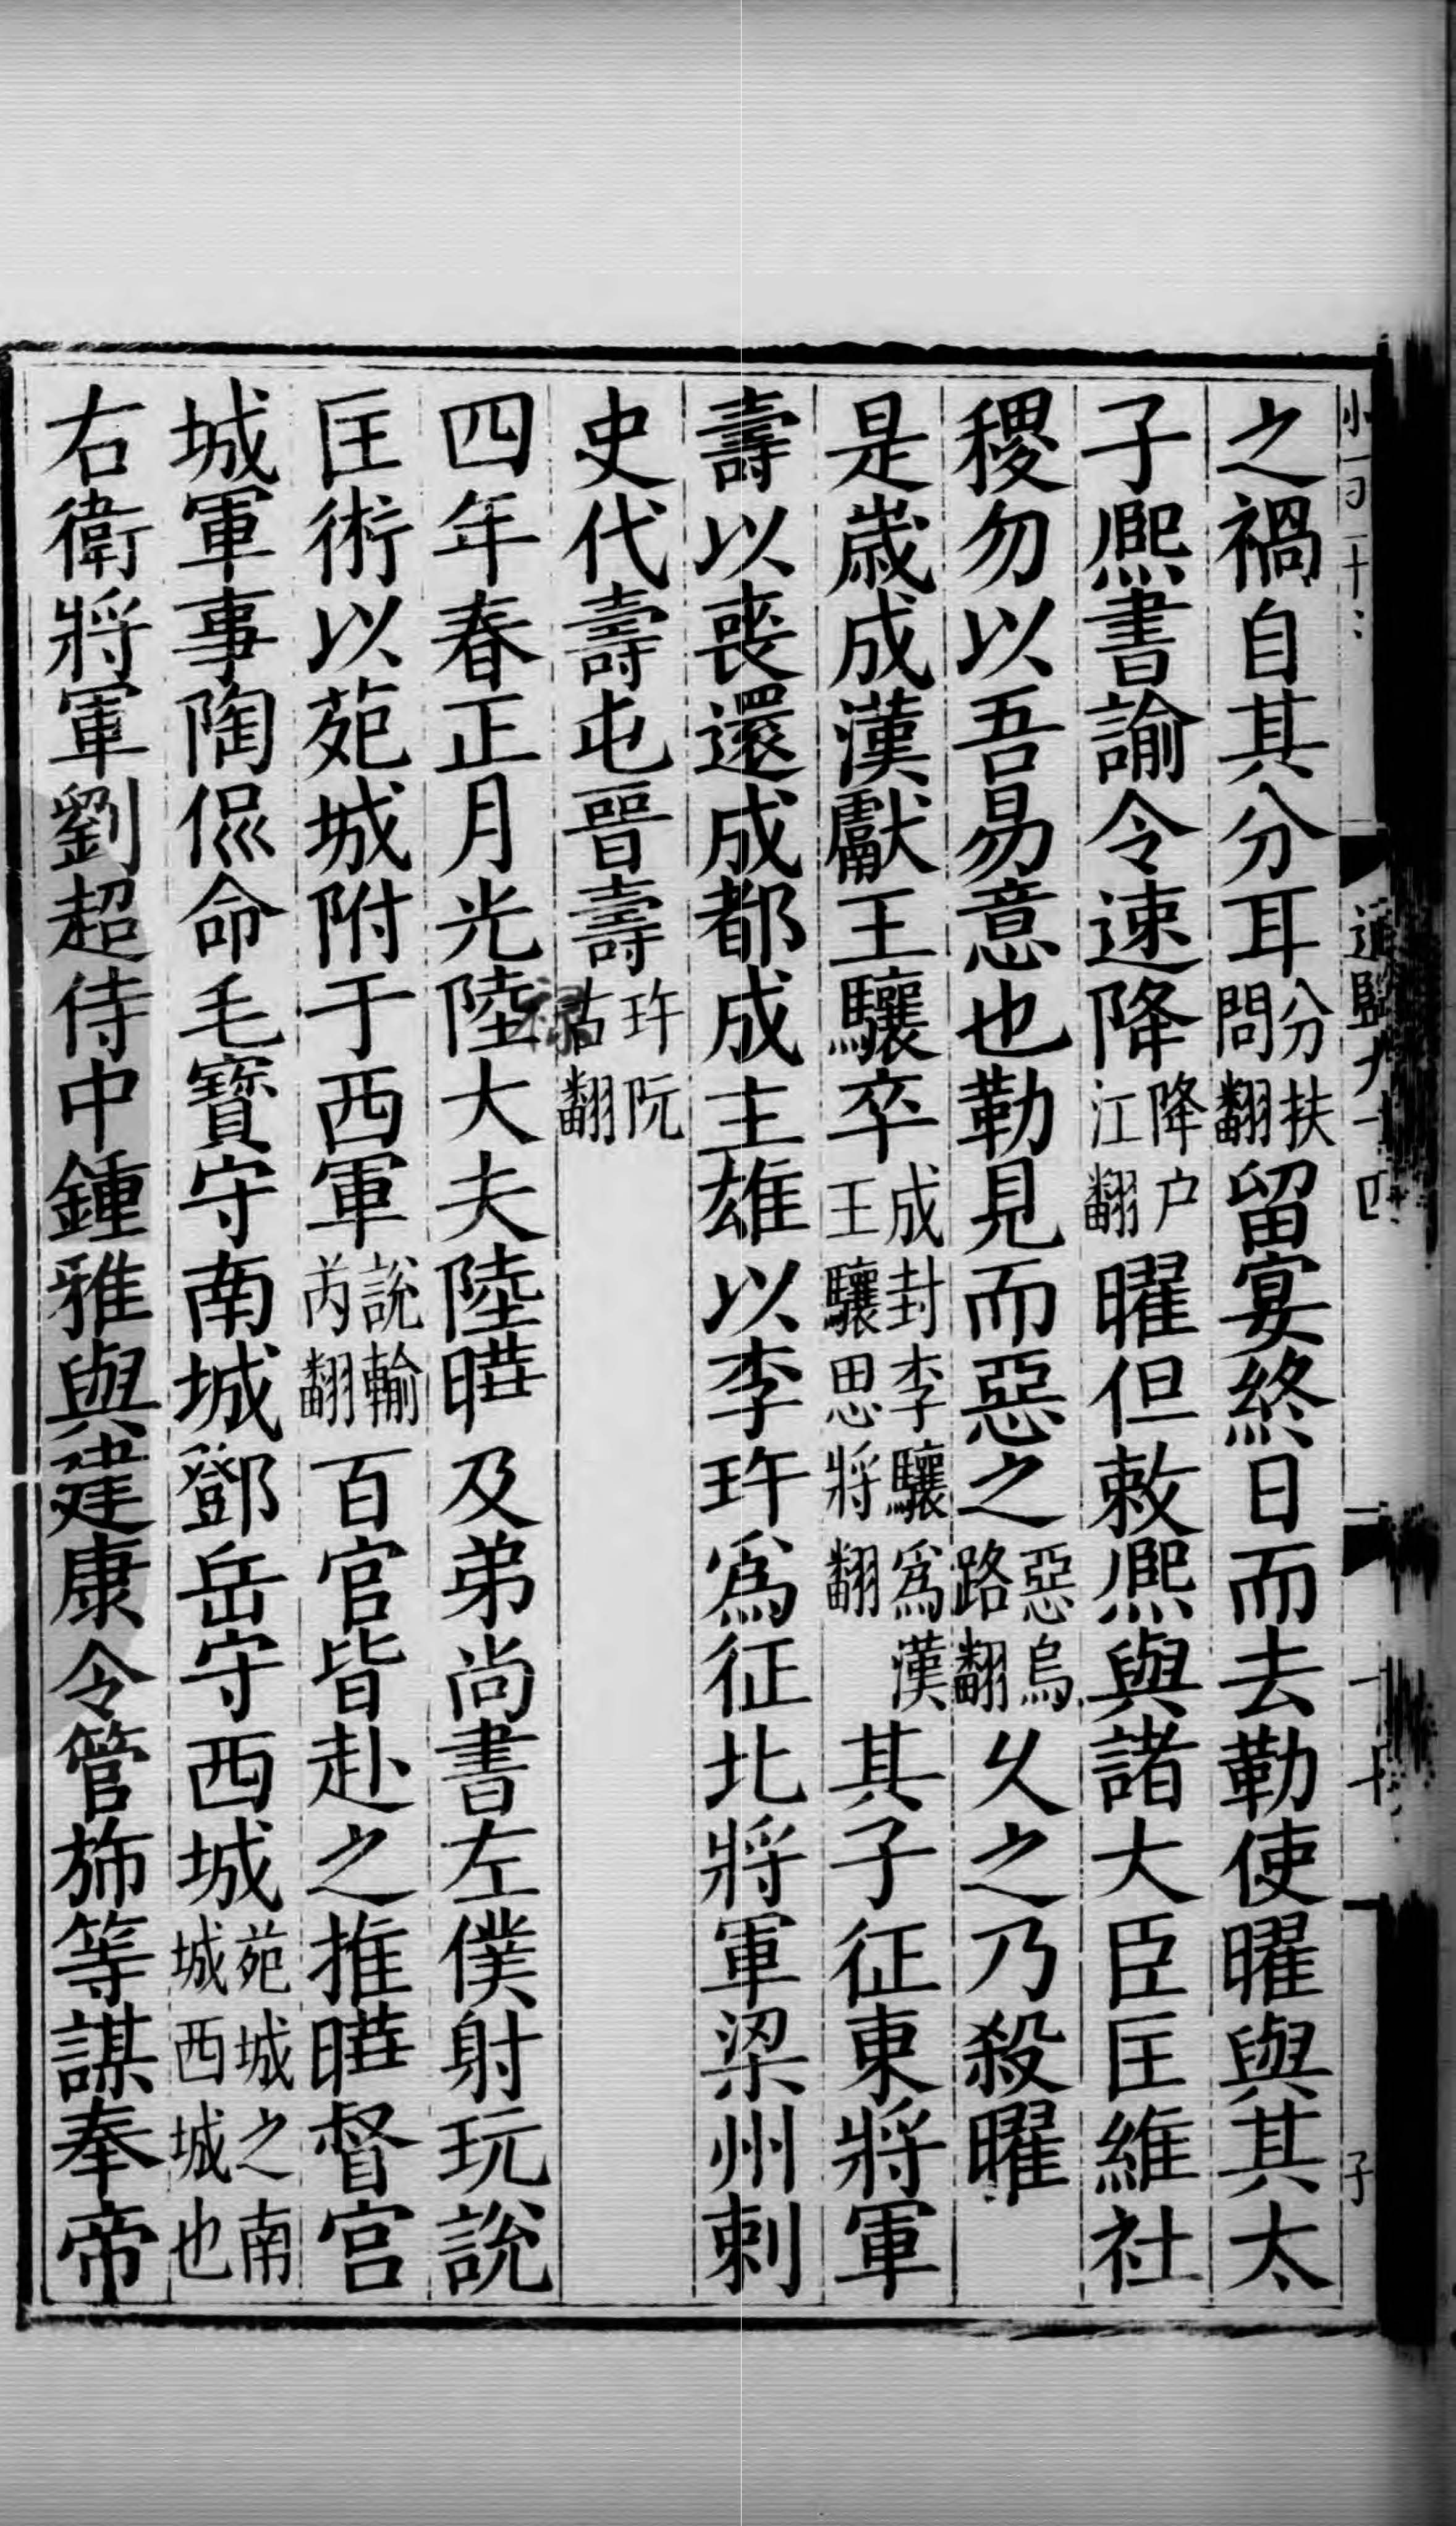 之禍自其分耳分扶問翻留宴終日而去勒使曜與其太
子熈書諭令速降降户江翻曜但敕熈與諸大臣匡維社
稷勿以吾易意也勒見而惡之惡烏路翻乆之乃殺曜
是歲成漢獻王驤卒成封李驤爲漢王驤思將翻其子征東將軍
壽以喪還成都成主雄以李玝爲征北將軍梁州刺
史代壽屯晉壽玝阮古翻
四年春正月光陸大夫陸曄及弟尚書左僕射玩說
匡術以苑城附于西軍說輸芮翻百官皆赴之推曄督宫
城軍事陶侃命毛寳守南城鄧岳守西城苑城之南城西城也
右衛將軍劉超侍中鍾雅與建康令管斾等謀奉帝